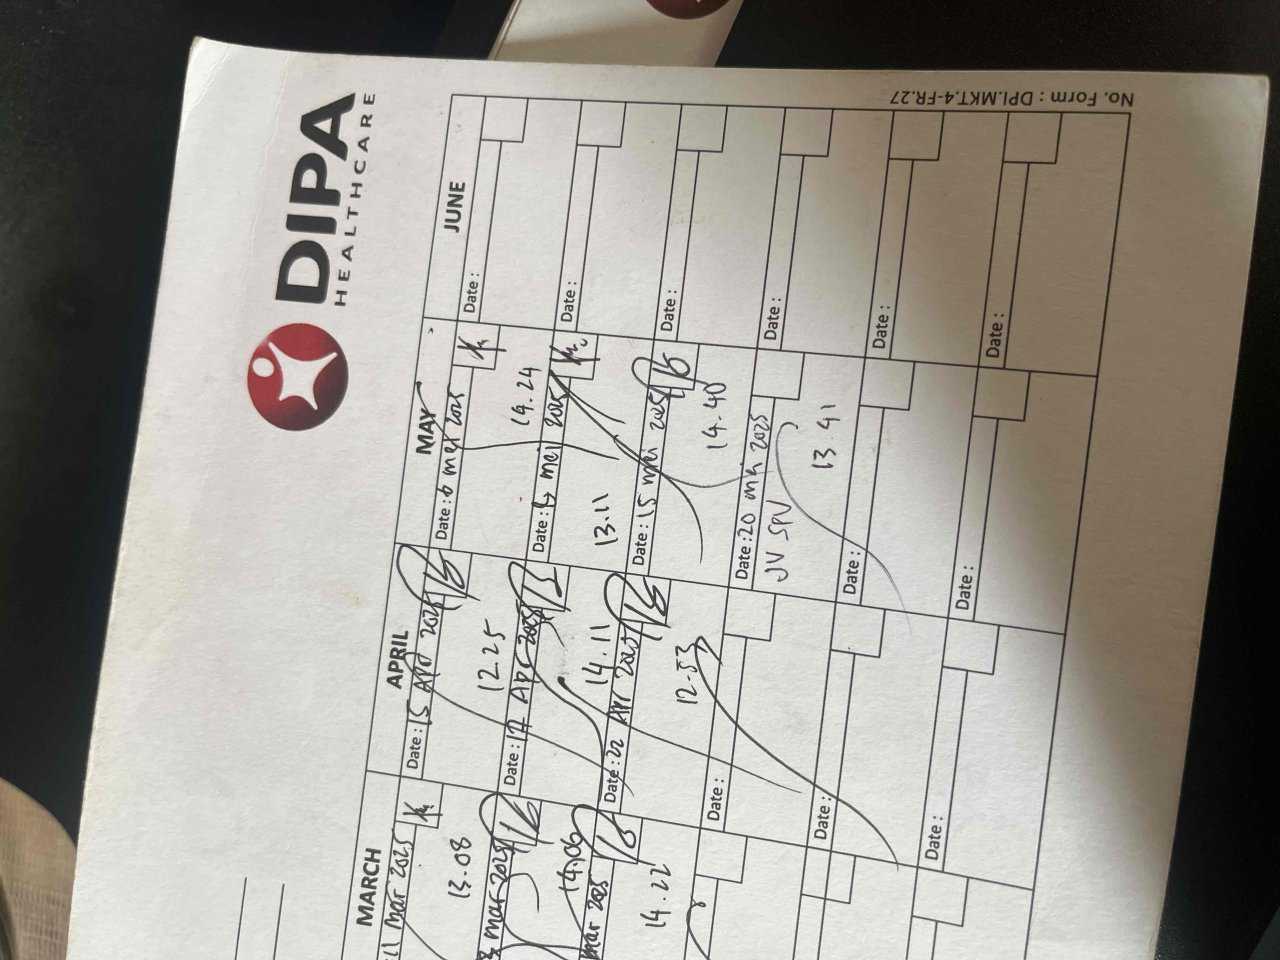 DIPA
HEALTHCARE
No. Form : DPI.MKT.4-FR.27
MARCH
11 mar 2025
13.08
mar 2025
14.06
mar 2025
14.22
APRIL
Date : 15 Apr 2025
12.25
Date : 17 Apr 2025
14.11
Date : 22 Apr 2025
12.53
Date :
Date :
Date :
MAY
Date : 6 mei 2025
14.24
Date : mei 2025
13.11
Date : 15 mei 2025
14.40
Date : 20 mei 2025
JV SPV
13.41
Date :
Date :
JUNE
Date :
Date :
Date :
Date :
Date :
Date :